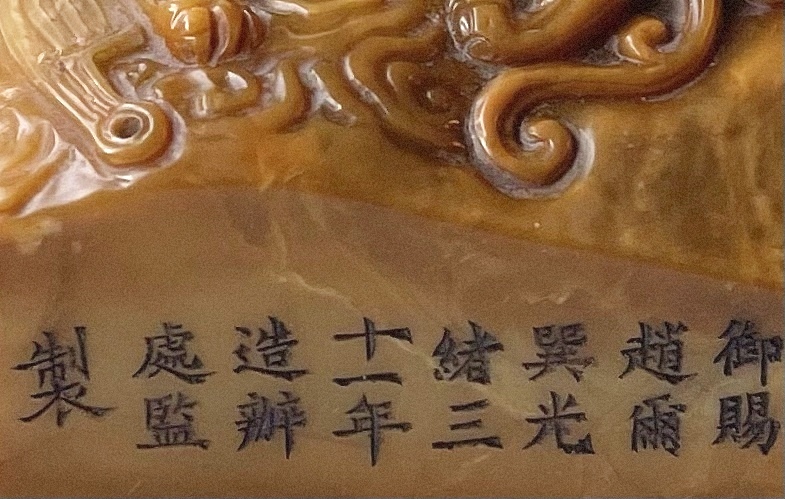 御賜
趙爾
巽光
緒三
十一年
造辦
處監
製